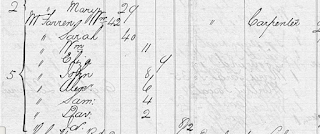 2 " Mary 29
McFarren Wm 42 " Carpenter
" Sarah 40
" Wm 11
" Eliz 9
5 " John 8
" Alex 6
" Sam 4
" Dav. 2
8/2